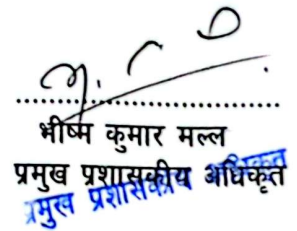 भीष्म कुमार मल्ल
प्रमुख प्रशासकीय अधिकृत
प्रमुख प्रशासकीय अधिकृत